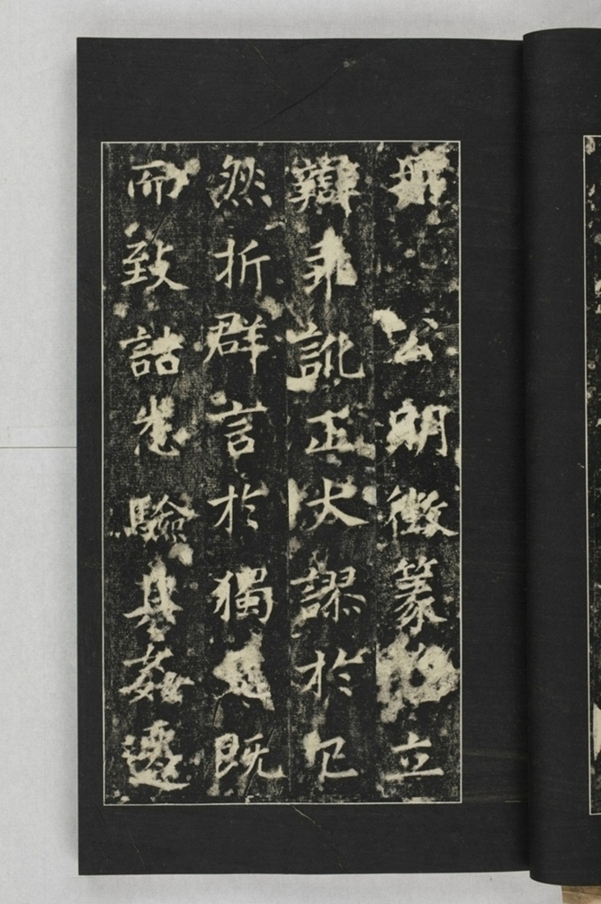 公明徵篆立
辯乖訛正大謬於
然折群言於獨既
而致詰悉驗其姦遷